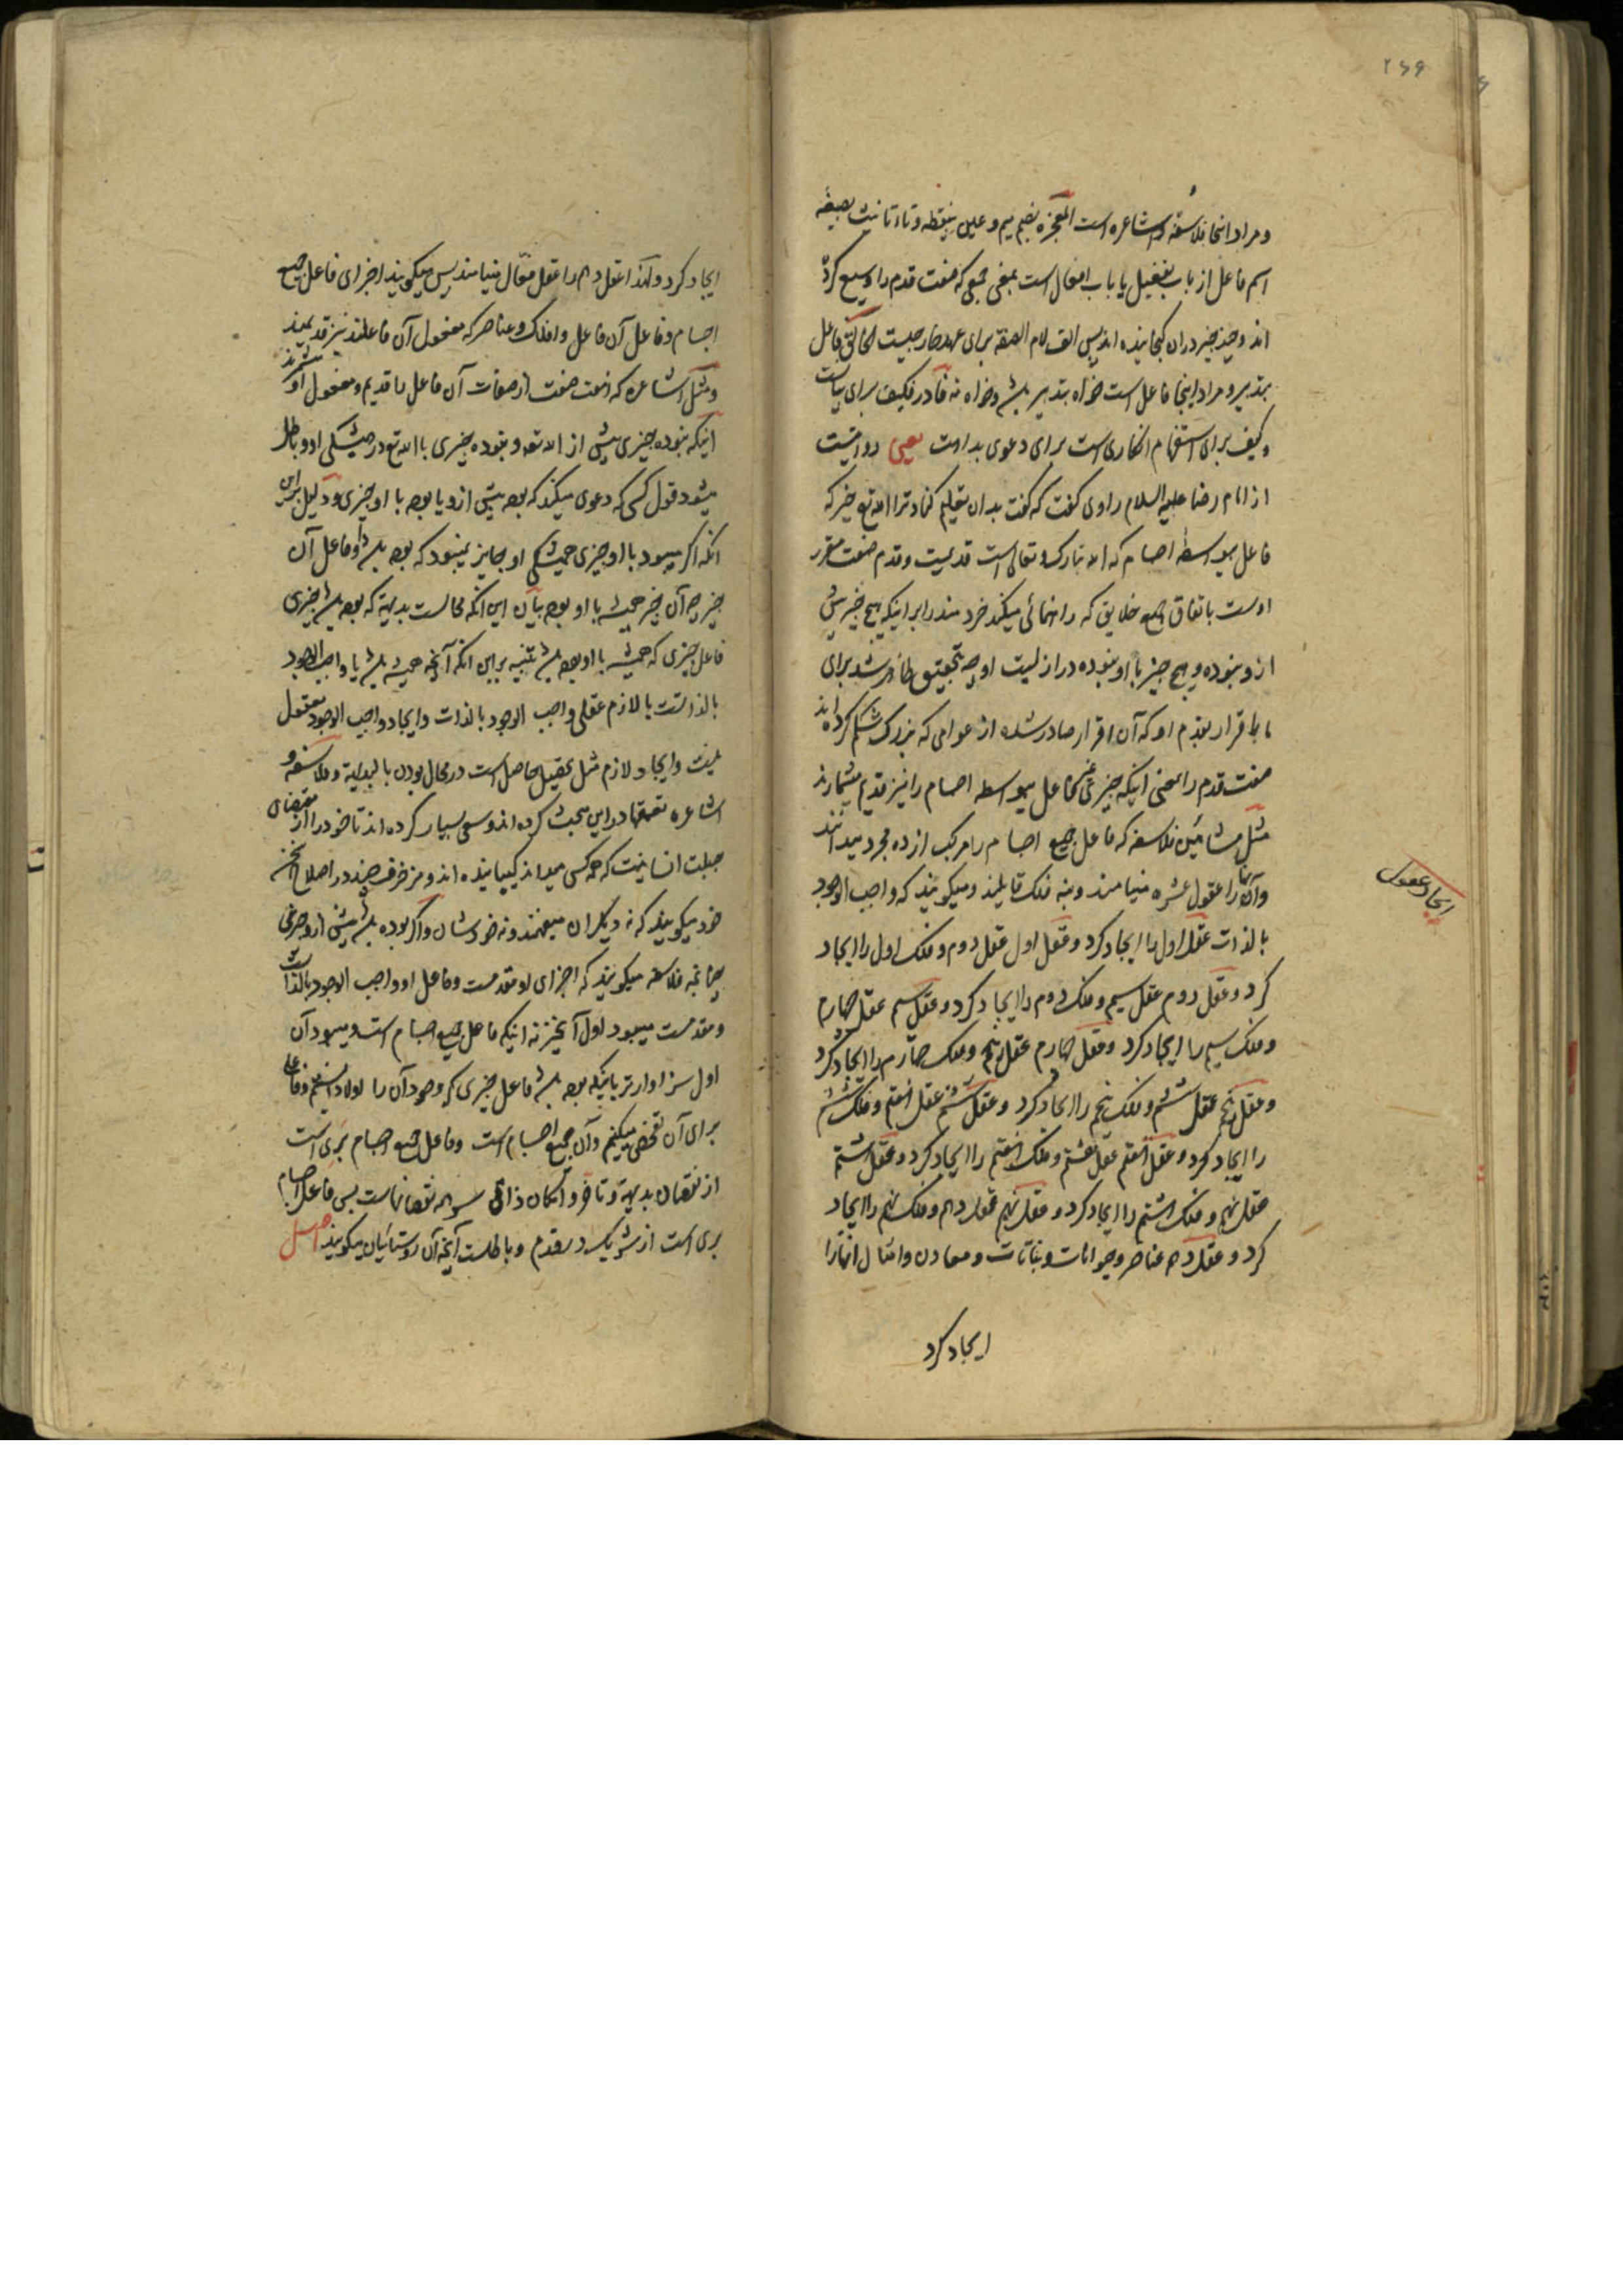 ۲۶۶
و مراد اینجا فلاسفه و اشاعره است المعجزه بضم میم و عین بینقطه و تاء تانیث بصیغه
اسم فاعل از باب تفعیل یا باب افعال است بمعنی جمعی که صفت قدم را وسیع کرده
اند و چند چیز دران گنجانیده اند پس الف لام الصفه برای عهد خارجیست الخالق فاعل
بتدبیر و مراد اینجا فاعل است خواه بتدبیر باشد و خواه نه فا در فکیف برای بیانست
و کیف برای استفهام انکاری است برای دعوی بداهت یعنی روایتست
از امام رضا علیه السلام راوی گفت که گفت بدان تعلیم کناد ترا الله تع خیر که
فاعل بیواسطه اجسام که الله تبارک و تعالی است قدیمست و قدم صفت مقرر
اوست باتفاق جمیع خلایق که راهنمائی میکند خردمند را بر اینکه هیچ چیز پیش
ازو نبوده و هیچ چیز با او نبوده در ازلیت او چه بتحقیق ظاهر شد برای
ما باقرار بقدم او که آن اقرار صادر شده از عوامی که بزرگ شکم کرده اند
صفت قدم را بمعنی اینکه چیزی غیر فاعل بیواسطه اجسام را نیز قدیم میشمارند
مثل مشائین فلاسفه که فاعل جمیع اجسام را مرکب از ده مجرد میدانند
و آنها را عقول عشره مینامند و بنه فلک قایلند و میگویند که واجب الوجود
بالذات عقل اول را ایجاد کرد و عقل اول عقل دوم و فلک اول را ایجاد
کرد و عقل دوم عقل سیم و فلک دوم را ایجاد کرد و عقل سیم عقل چهارم
و فلک سیم را ایجاد کرد و عقل چهارم عقل پنجم و فلک چهارم را ایجاد کرد
و عقل پنجم عقل ششم و فلک پنجم را ایجاد کرد و عقل ششم عقل هفتم و فلک ششم
را ایجاد کرد و عقل هفتم عقل هشتم و فلک هفتم را ایجاد کرد و عقل هشتم
عقل نهم و فلک هشتم را ایجاد کرد و عقل نهم عقل دهم و فلک نهم را ایجاد
کرد و عقل دهم عناصر و حیوانات و نباتات و معادن و امثال انها را
ایجاد کرد
ایجاد عقول
ایجاد کرد و لهذا عقل دهم را عقل فعّال مینامند پس میگویند اجزای فاعل جمیع
اجسام و فاعل آن فاعل و افلاک و عناصر که مفعول آن فاعلند نیز قدیمند
و مثل اشاعره که هفت صفت از صفات آن فاعل را قدیم و مفعول او میشمرند
اینکه نبوده چیزی پیش از الله تعه و نبوده چیزی با الله تع در همیشگی او و باطل
میشود قول کسی که دعوی میکند که بوده پیش ازو یا بوده با او چیزی و دلیل برین
انکه اگر میبود با او چیزی در همیشگی او جایز نمیبود که بوده باشد او فاعل آن
چیز چه آن چیز همیشه با او بوده بیان این انکه محالست بدیهة که بوده باشد چیزی
فاعل چیزی که همیشه با او بوده باشد تنبیه برین انکه آنچه همیشه باشد یا واجب الوجود
بالذاتست یا لازم عقلی واجب الوجود بالذات و ایجاد واجب الوجود معقول
نیست و ایجاد لازم مثل تحصیل حاصل است در محال بودن بالبدایة و فلاسفه و
اشاعره تعمقها در این مبحث کرده اند و سعی بسیار کرده اند تا خود را از مقتضای
جبلت انسانیت که همه کس میداند گسیانیده اند و مزخرف چند در اصلاح سخن
خود میگویند که نه دیگران میفهمند و نه خودشان و اگر بوده باشد پیش ازو چیزی
چنانچه فلاسفه میگویند که اجزای او مقدمست و فاعل او واجب الوجود بالذات
و مقدمست میبود اول آنچیز نه اینکه فاعل جمیع اجسام است و میبود آن
اول سزاوارتر باینکه بوده باشد فاعل چیزی که وجود آن را اولا دانستیم و فاعل
برای آن تفحص میکنیم و آن جمیع اجسام است و فاعل جمیع اجسام بری است
از نقصان بدیهة و تاخر و امکان ذاتی سر همه نقصانهاست پس فاعل اجسام
بری است از شریک در قدم و باطلست آنچه آن روستائیان میگویند اصل